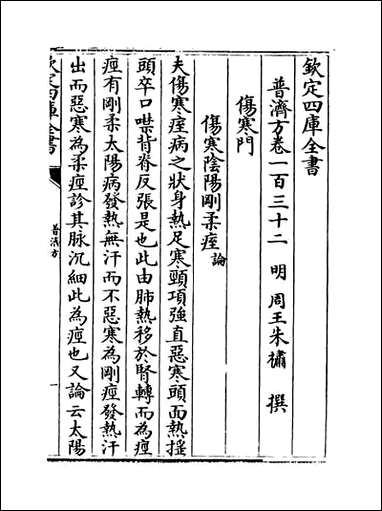 欽定四庫全書
普濟方卷一百三十二　明　周王朱橚　撰
傷寒門
傷寒陰陽剛柔痙論
夫傷寒痙病之狀身熱足寒頸項強直惡寒頭面熱揺
頭卒口噤背脊反張是也此由肺熱移於腎轉而為痙
痙有剛柔太陽病發熱無汗而不惡寒為剛痙發熱汗
出而惡寒為柔痙診其脉沉細此為痙也又論云太陽
欽定四庫全書
普濟方
一